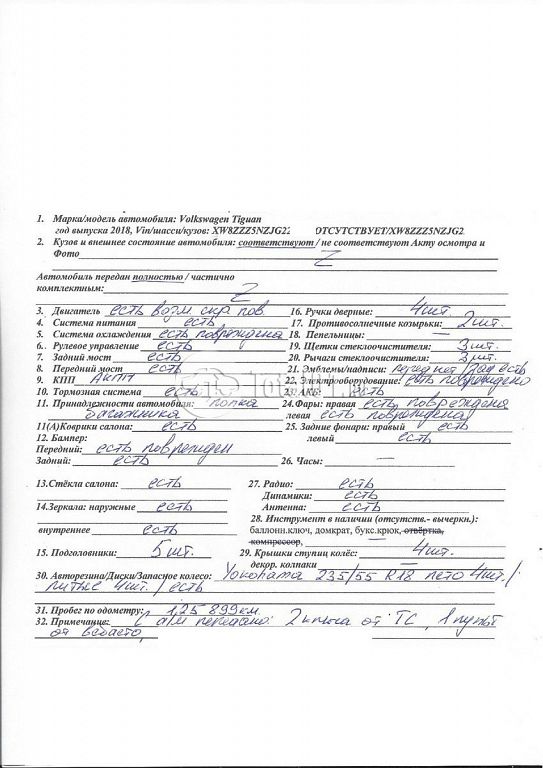 1. Марка/модель автомобиля: Volkswagen Tiguan
год выпуска 2018, Vin/шасси/кузов: XW8ZZZ5NZJG22 ОТСУТСТВУЕТ/XW8ZZZ5NZJG2
2. Кузов и внешнее состояние автомобиля: соответствуют / не соответствуют Акту осмотра и
Фото Z
Автомобиль передан полностью / частично
комплектным: Z
3. Двигатель есть возм скр пов 16. Ручки дверные: 4шт.
4. Система питания есть 17. Противосолнечные козырьки: 2шт.
5. Система охлаждения есть повреждена 18. Пепельницы: —
6. Рулевое управление есть 19. Щетки стеклоочистителя: 3шт.
7. Задний мост есть 20. Рычаги стеклоочистителя: 3шт.
8. Передний мост есть 21. Эмблемы/надписи: перед нет / зад есть
9. КПП АКПП 22. Электрооборудование: есть повреждено
10. Тормозная система есть 23. АКБ: есть
11. Принадлежности автомобиля: полка 24. Фары: правая есть, повреждена
багажника левая есть повреждена
11(А)Коврики салона: есть 25. Задние фонари: правый есть
12. Бампер: левый есть
Передний: есть поврежден
Задний: есть 26. Часы: —
13.Стёкла салона: есть 27. Радио: есть
Динамики: есть
14.Зеркала: наружные есть Антенна: есть
28. Инструмент в наличии (отсутств.- вычеркн.):
внутреннее есть баллонн.ключ, домкрат, букс.крюк, отвёртка,
компрессор,
15. Подголовники: 5шт. 29. Крышки ступиц колёс: 4шт.
декор. колпаки —
30. Авторезина/Диски/Запасное колесо: Yokohama 235/55 R18 лето 4шт./
литые 4шт. / есть
31. Пробег по одометру: 125 899км.
32. Примечание: С а/м передано: 2 ключа от ТС, 1 пульт
от вебасто,